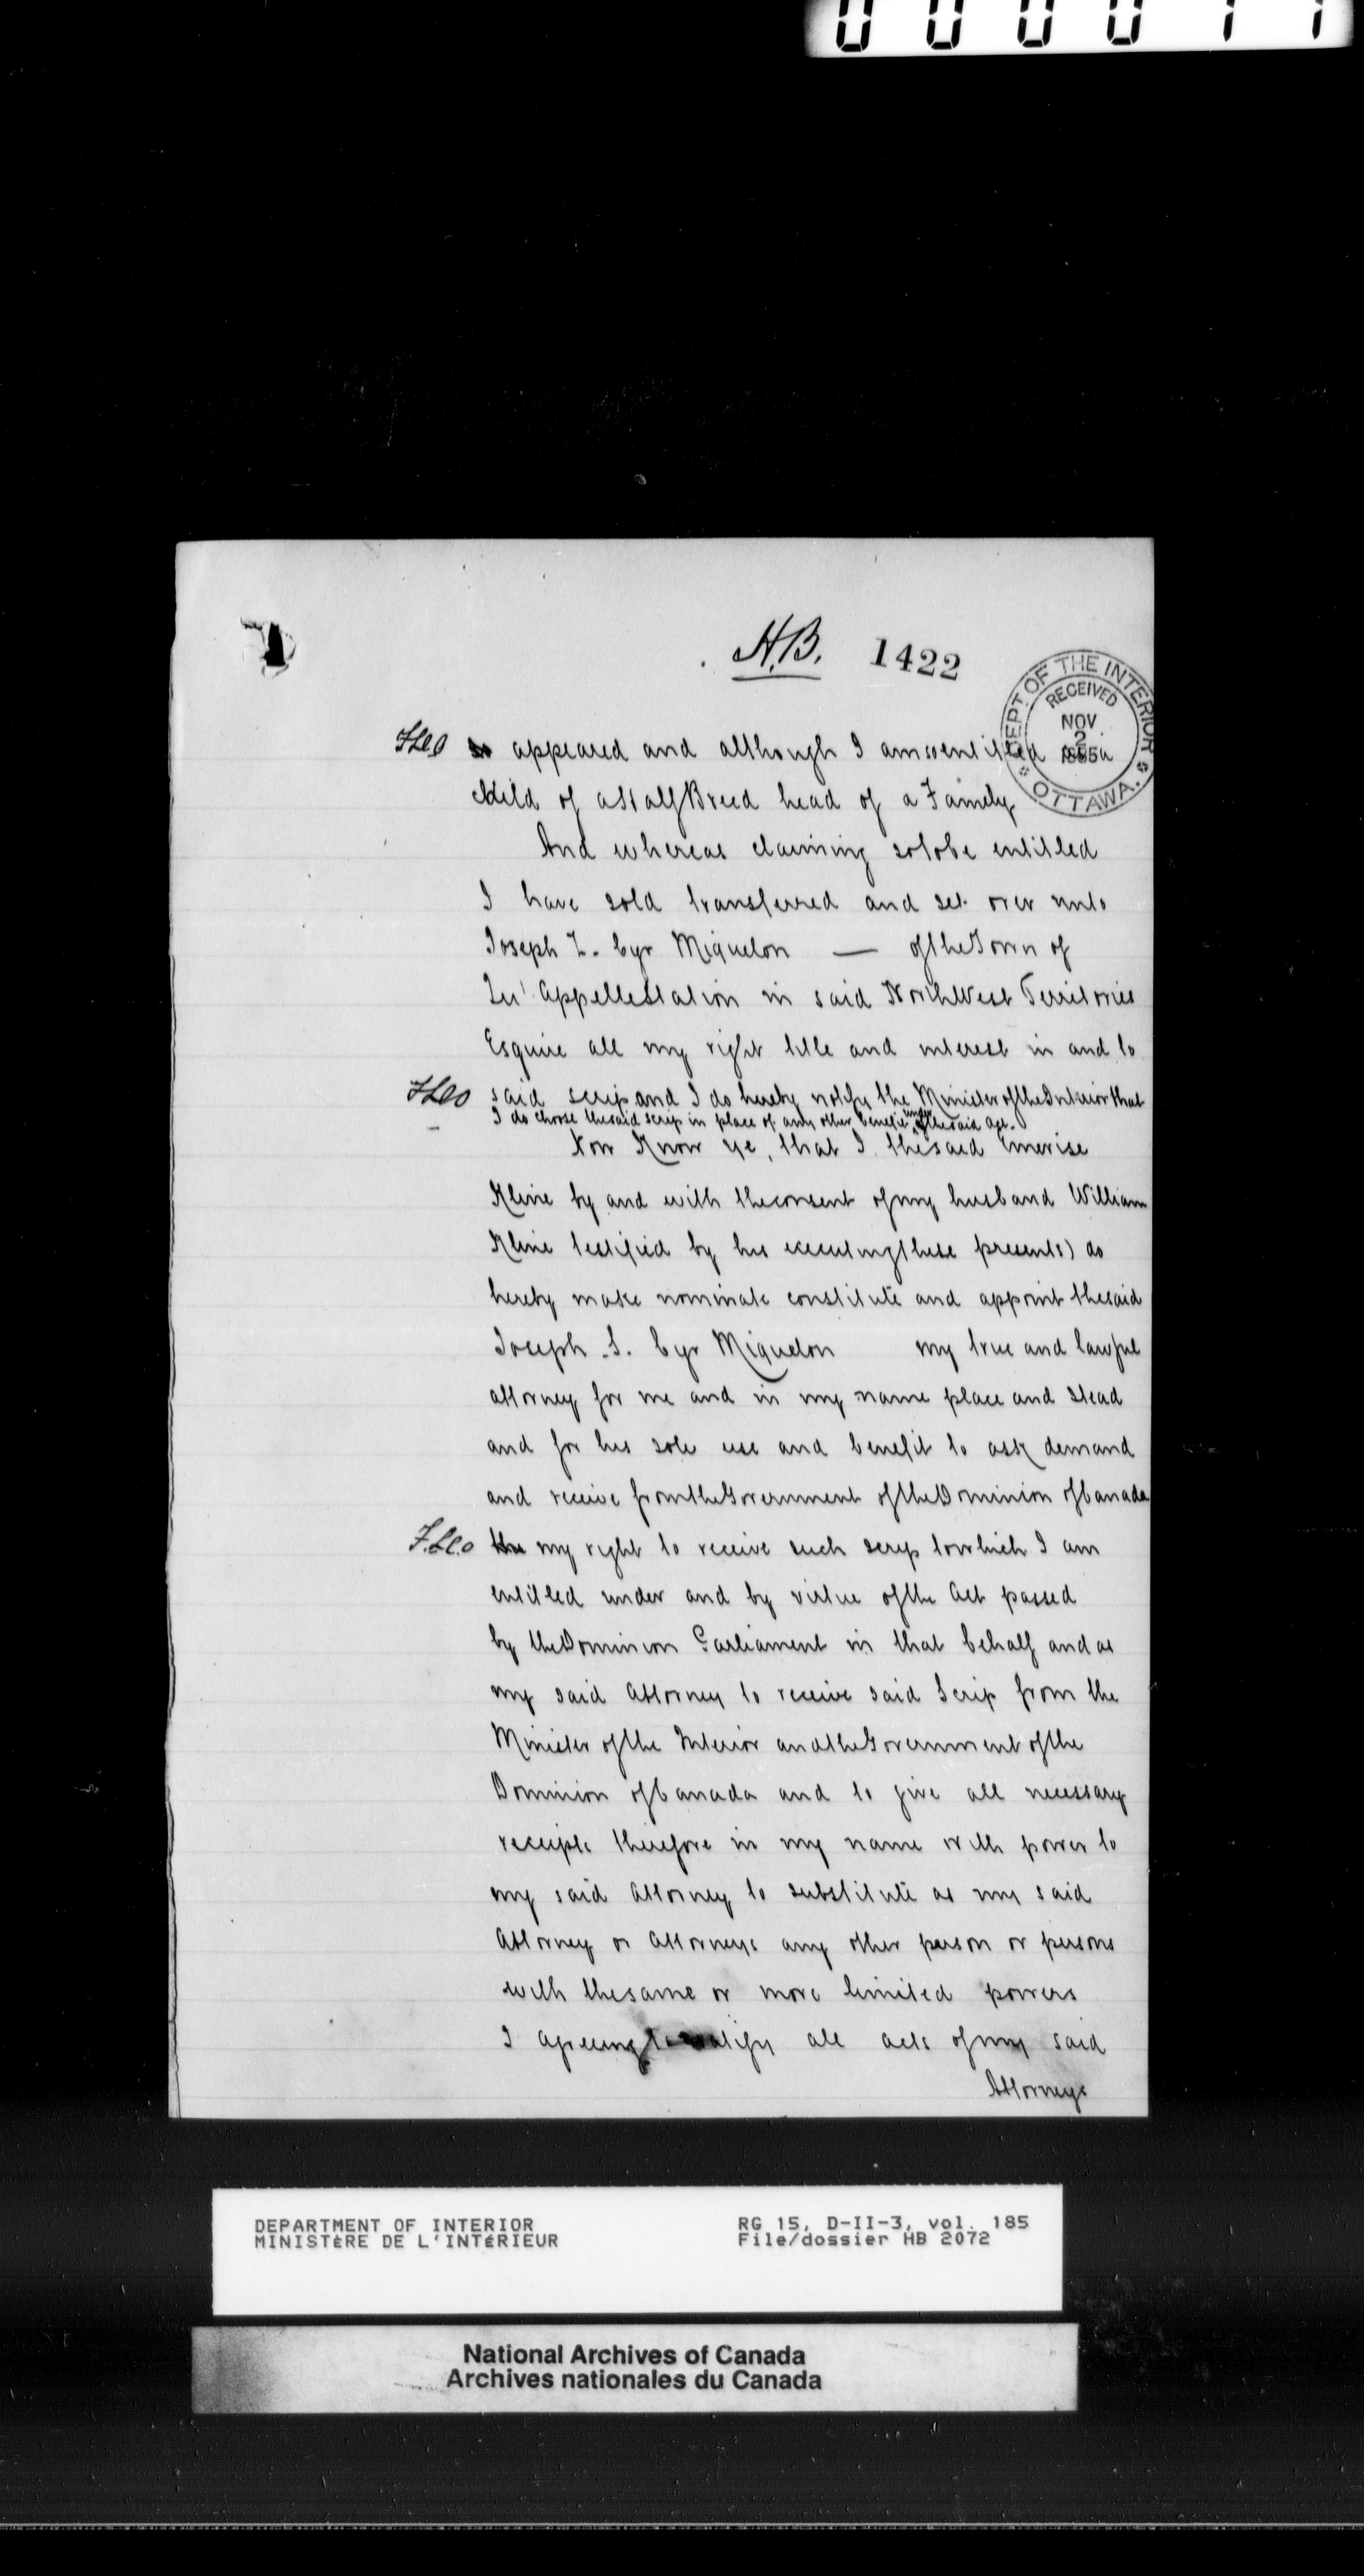 000011
H.B. 1422
DEPT OF THE INTERIOR
RECEIVED
NOV
2
1885
OTTAWA.
appeared and although I am so entitled as a
child of a Half Breed head of a Family
And whereas claiming so to be entitled
I have sold transferred and set over unto
Joseph Z. Cyr Miquelon — of the Town of
Qu'Appelle Station in said North West Territories
Esquire all my right title and interest in and to
said scrip and I do hereby notify the Minister of the Interior that
I do choose the said scrip in place of any other benefit under the said Act.
Now Know ye, that I the said Emerise
Kline by and with the consent of my husband William
Kline testified by his executing these presents) do
hereby make nominate constitute and appoint the said
Joseph Z. Cyr Miquelon my true and lawful
attorney for me and in my name place and stead
and for his sole use and benefit to ask demand
and receive from the Government of the Dominion of Canada
my right to receive such scrip to which I am
entitled under and by virtue of the Act passed
by the Dominion Parliament in that behalf and as
my said Attorney to receive said Scrip from the
Minister of the Interior and the Government of the
Dominion of Canada and to give all necessary
receipts therefore in my name with power to
my said Attorney to substitute as my said
Attorney or Attorneys any other person or persons
with the same or more limited powers
I agreeing to ratify all acts of my said
Attorneys
DEPARTMENT OF INTERIOR RG 15, D-II-3, vol. 185
MINISTÈRE DE L'INTÉRIEUR File/dossier HB 2072
National Archives of Canada
Archives nationales du Canada